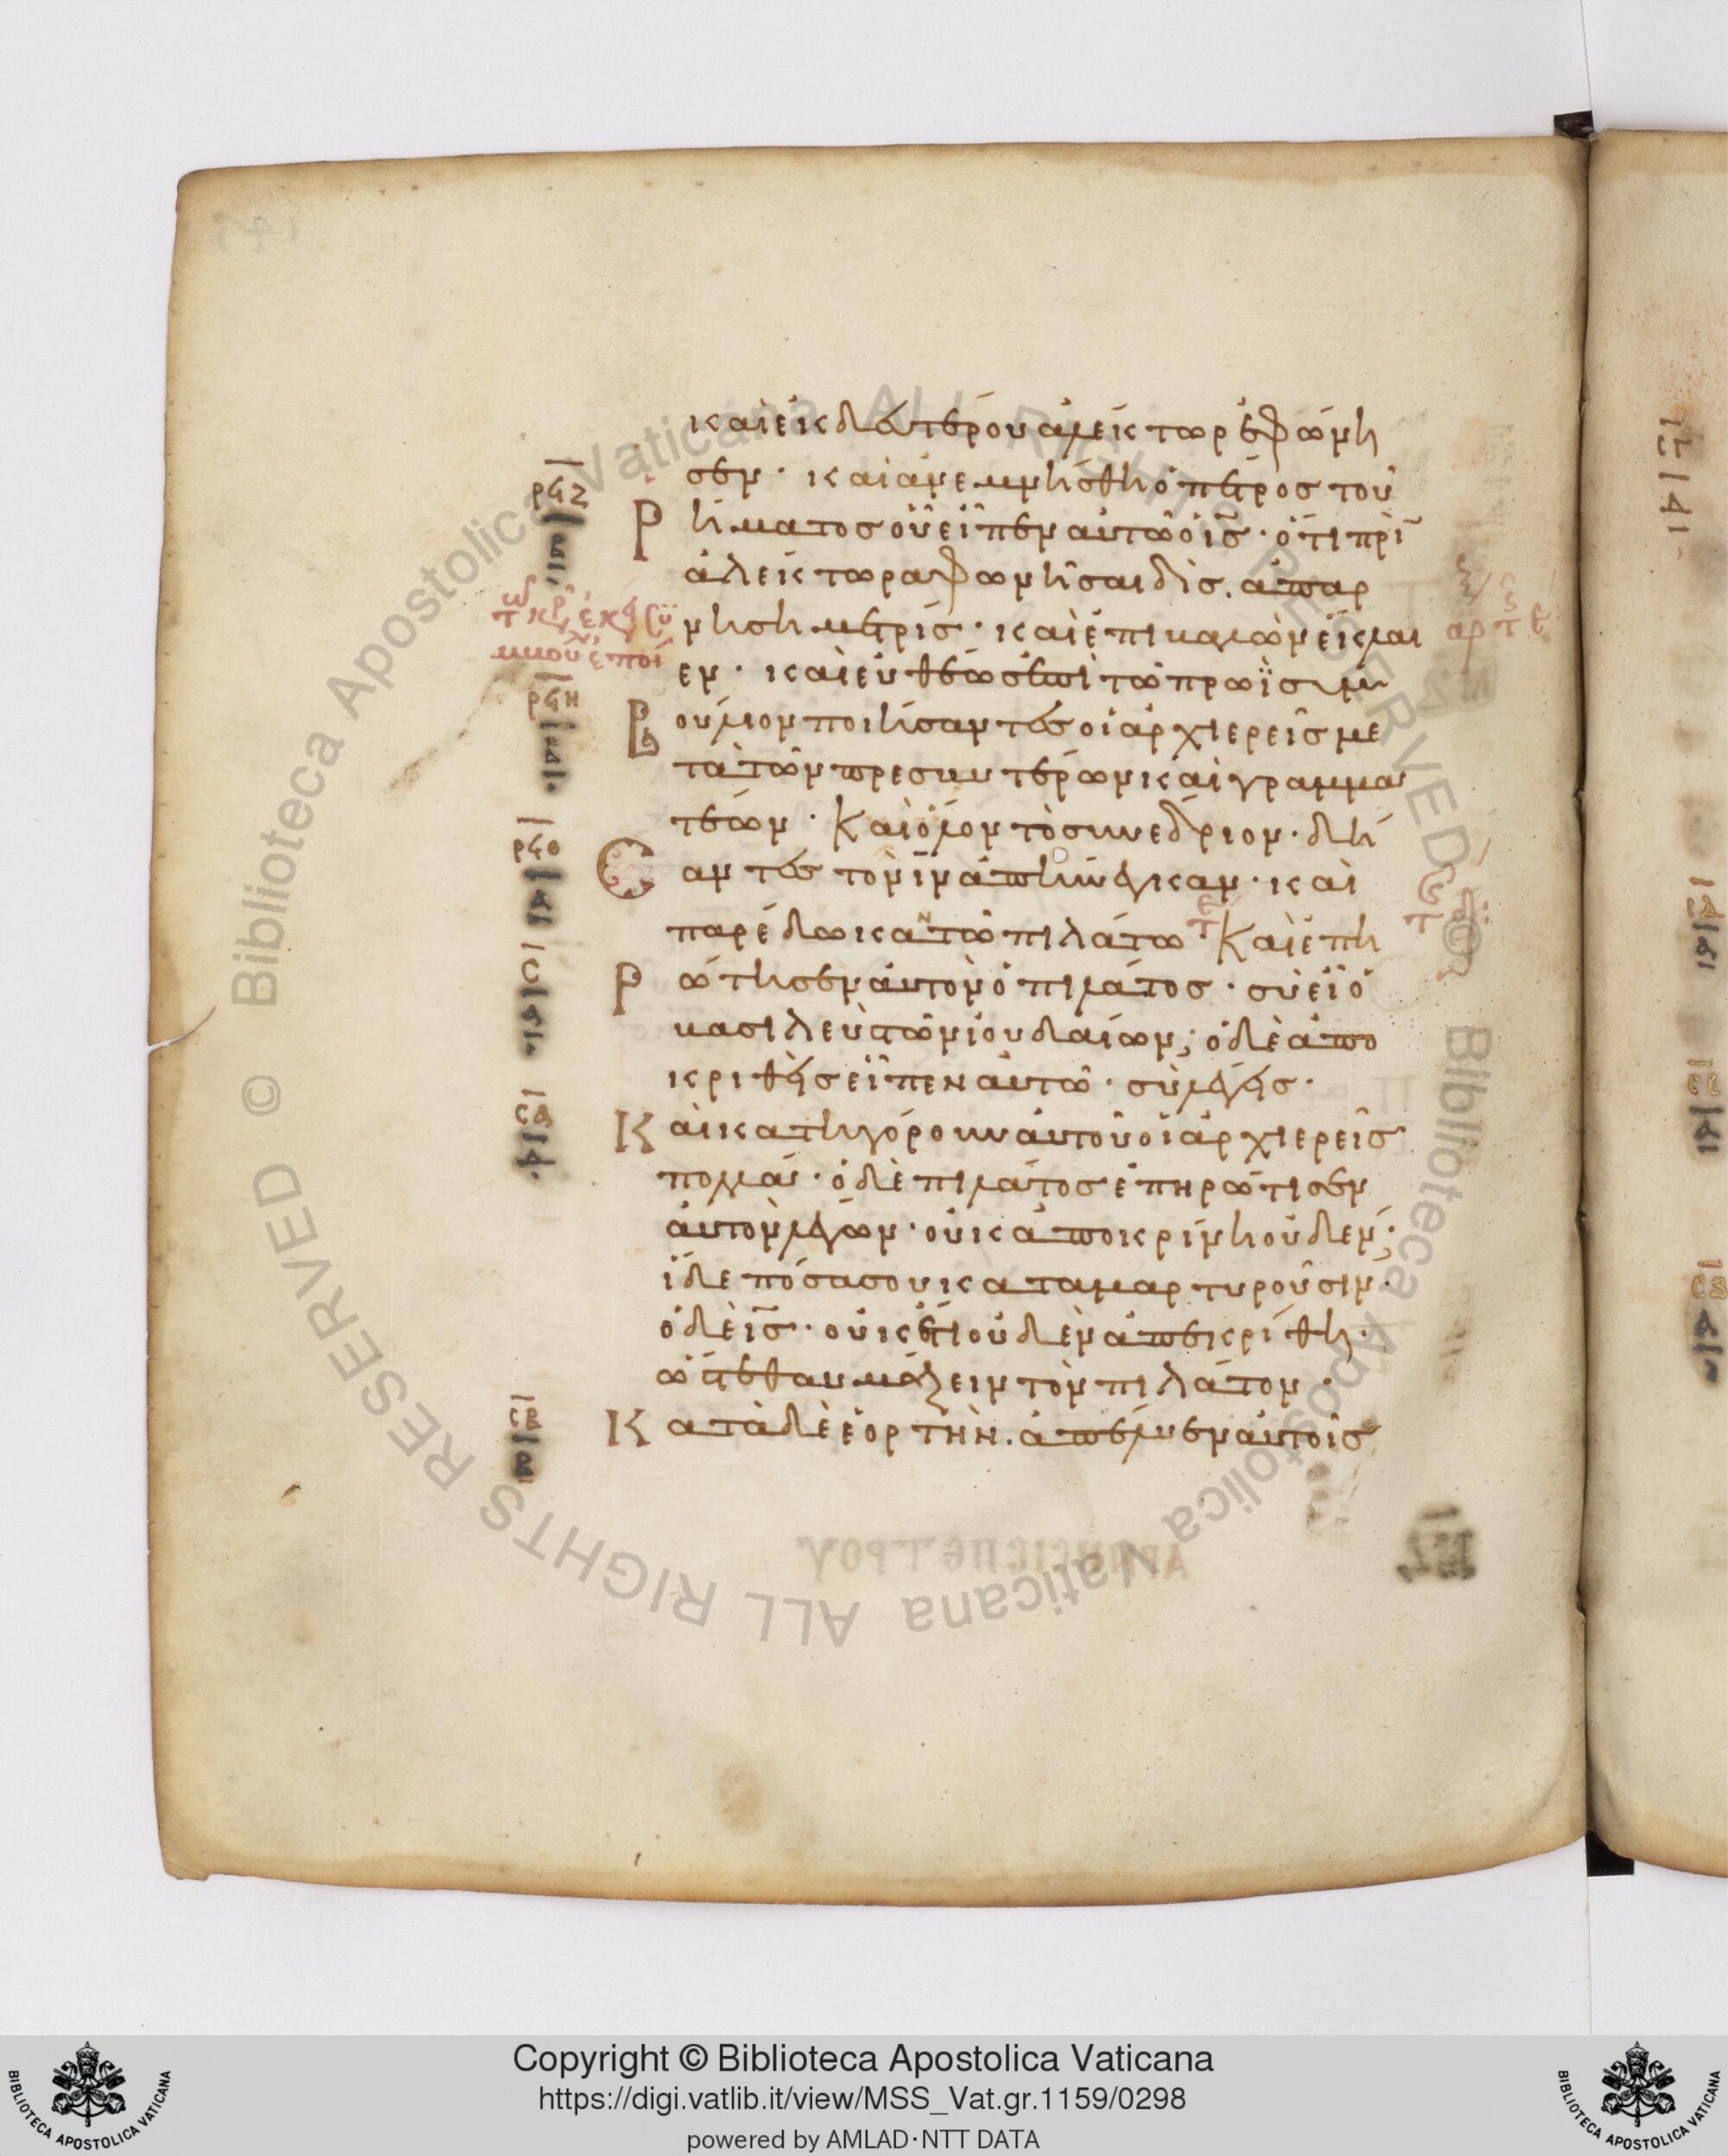 καὶ ἐκ δευτέρου ἀλέκτωρ ἐφώνη
σεν· καὶ ἀνεμνήσθη ὁ πέτρος τοῦ
Ρήματος οὗ εἶπεν αὐτῶ ὁ ἰς· ὅτι πρὶ
ἀλέκτωρα φωνῆσαι δὶς. ἀπαρ
νήση με τρίς· καὶ ἐπιβαλὼν ἔκλαι
εν· καὶ εὐθέως ἐπὶ τὸ πρωῒ συμ
Βούλιον ποιήσαντες οἱ ἀρχιερεῖς με
τὰ τῶν πρεσβυτέρων καὶ γραμμα
τέων· Καὶ ὅλον τὸ συνεδριον· δή
Σαντες τὸν ιν ἀπήνεγκαν· καὶ
παρέδωκαν τῶ πιλάτω· Καὶ ἐπη
Ρώτησεν αὐτὸν ὁ πιλάτος· σὺ εἶ ὁ
βασιλεὺς τῶν ἰουδαίων; ὁ δὲ ἀπο
κριθεὶς εἶπεν αὐτῶ· σὺ λέγεις·
Καὶ κατηγόρουν αὐτοῦ οἱ ἀρχιερεῖς
πολλά· ὁ δὲ πιλάτος ἐπηρώτισεν
αὐτὸν λέγων· οὐκ ἀποκρίνη οὐδέν;
ἴδε πόσα σου καταμαρτυροῦσιν·
ὁ δὲ ις· οὐκέτι οὐδὲν ἀπεκρίθη·
ὥστε θαυμάζειν τὸν πιλάτον·
Κατὰ δὲ ἑορτὴν. ἀπέλυεν αὐτοῖς
ρϟζ
ρϟη
ρϟθ
ϲ
ϲα
ϲβ
Copyright © Biblioteca Apostolica Vaticana
https://digi.vatlib.it/view/MSS_Vat.gr.1159/0298
powered by AMLAD·NTT DATA
BIBLIOTECA APOSTOLICA VATICANA
BIBLIOTECA APOSTOLICA VATICANA
© Biblioteca Apostolica Vaticana ALL RIGHTS RESERVED
© Biblioteca Apostolica Vaticana ALL RIGHTS RESERVED